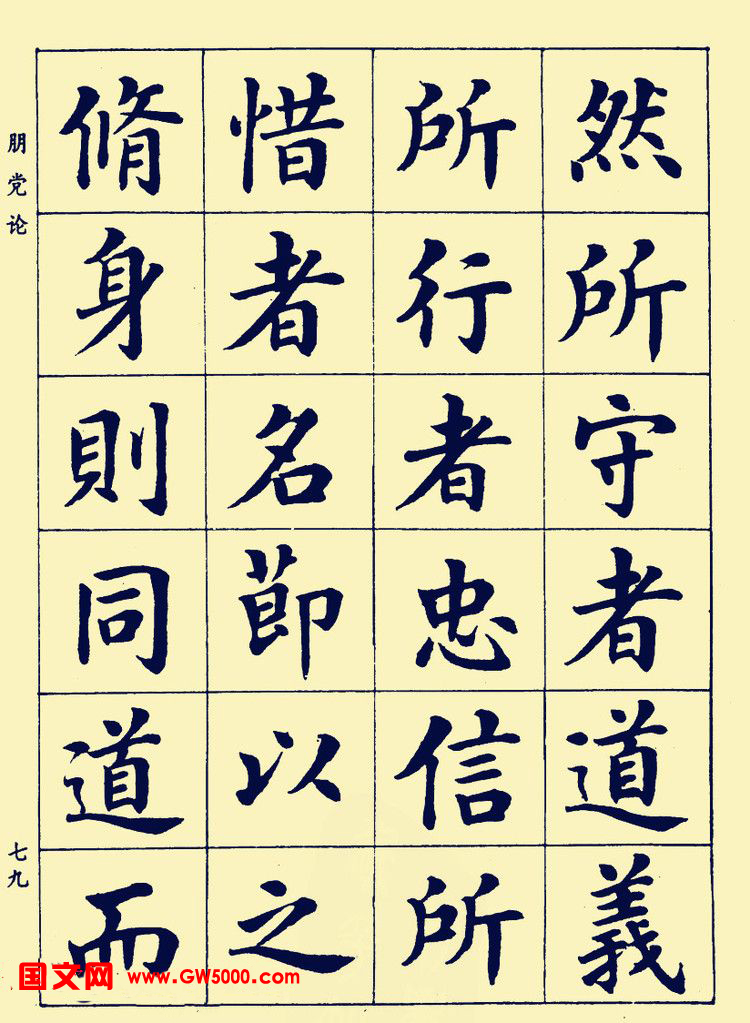 然所守者道義
所行者忠信所
惜者名節以之
脩身則同道而
朋党论
七九
国文网 www.GW5000.com